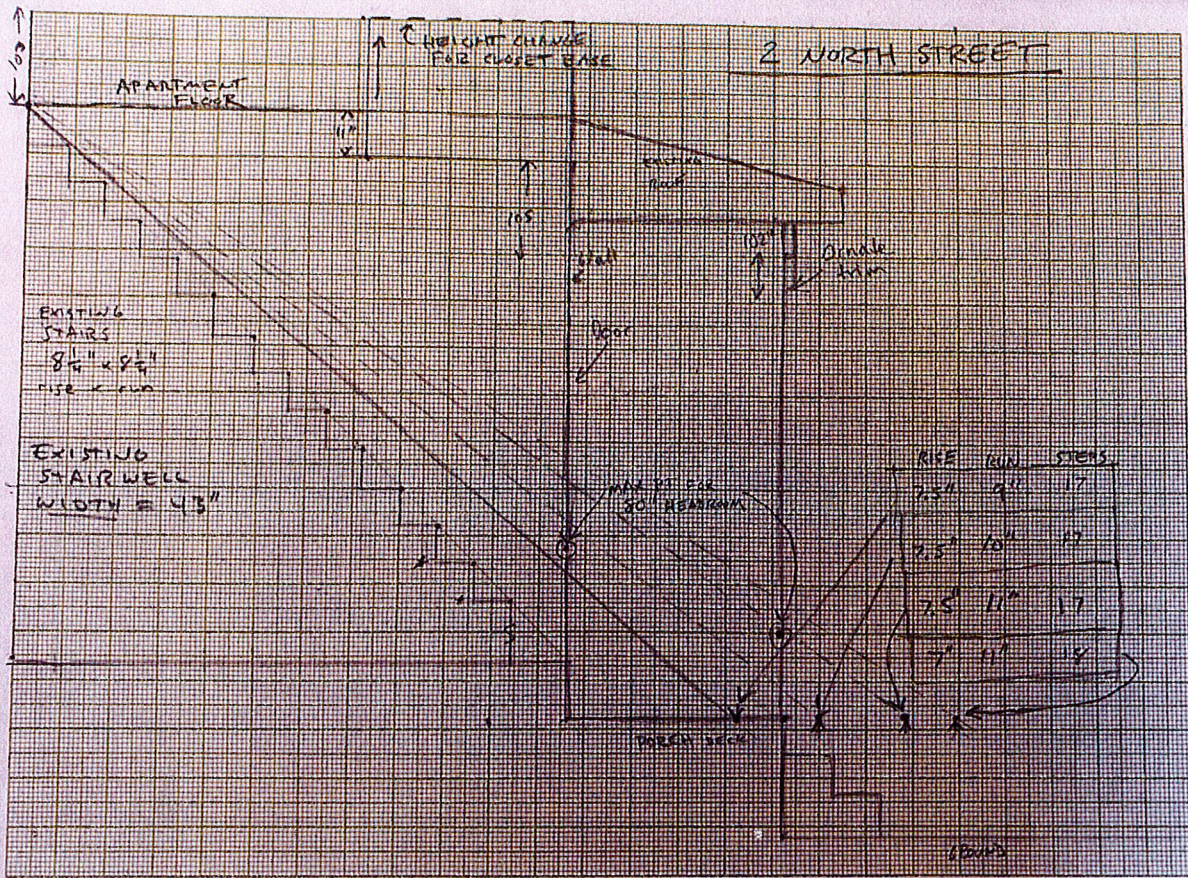 2 NORTH STREET
HEIGHT CHANGE
FOR CLOSET BASE
APARTMENT
FLOOR
11"
EXISTING
105
102"
Ornate
trim
Wall
Door
EXISTING
STAIRS
8 1/4" x 8 1/4"
rise x run
EXISTING
STAIRWELL
WIDTH = 43"
MAX PT FOR
80" HEADROOM
RISE RUN STEPS
7.5" 9" 17
7.5" 10" 17
7.5" 11" 17
7" 11" 18
PORCH DECK
GROUND